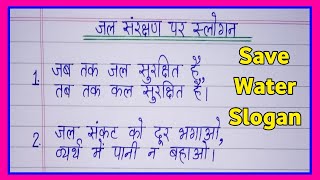 जल संरक्षण पर स्लोगन
1. जब तक जल सुरक्षित है,
तब तक कल सुरक्षित है।
2. जल संकट को दूर भगाओ,
व्यर्थ में पानी न बहाओ।
Save
Water
Slogan